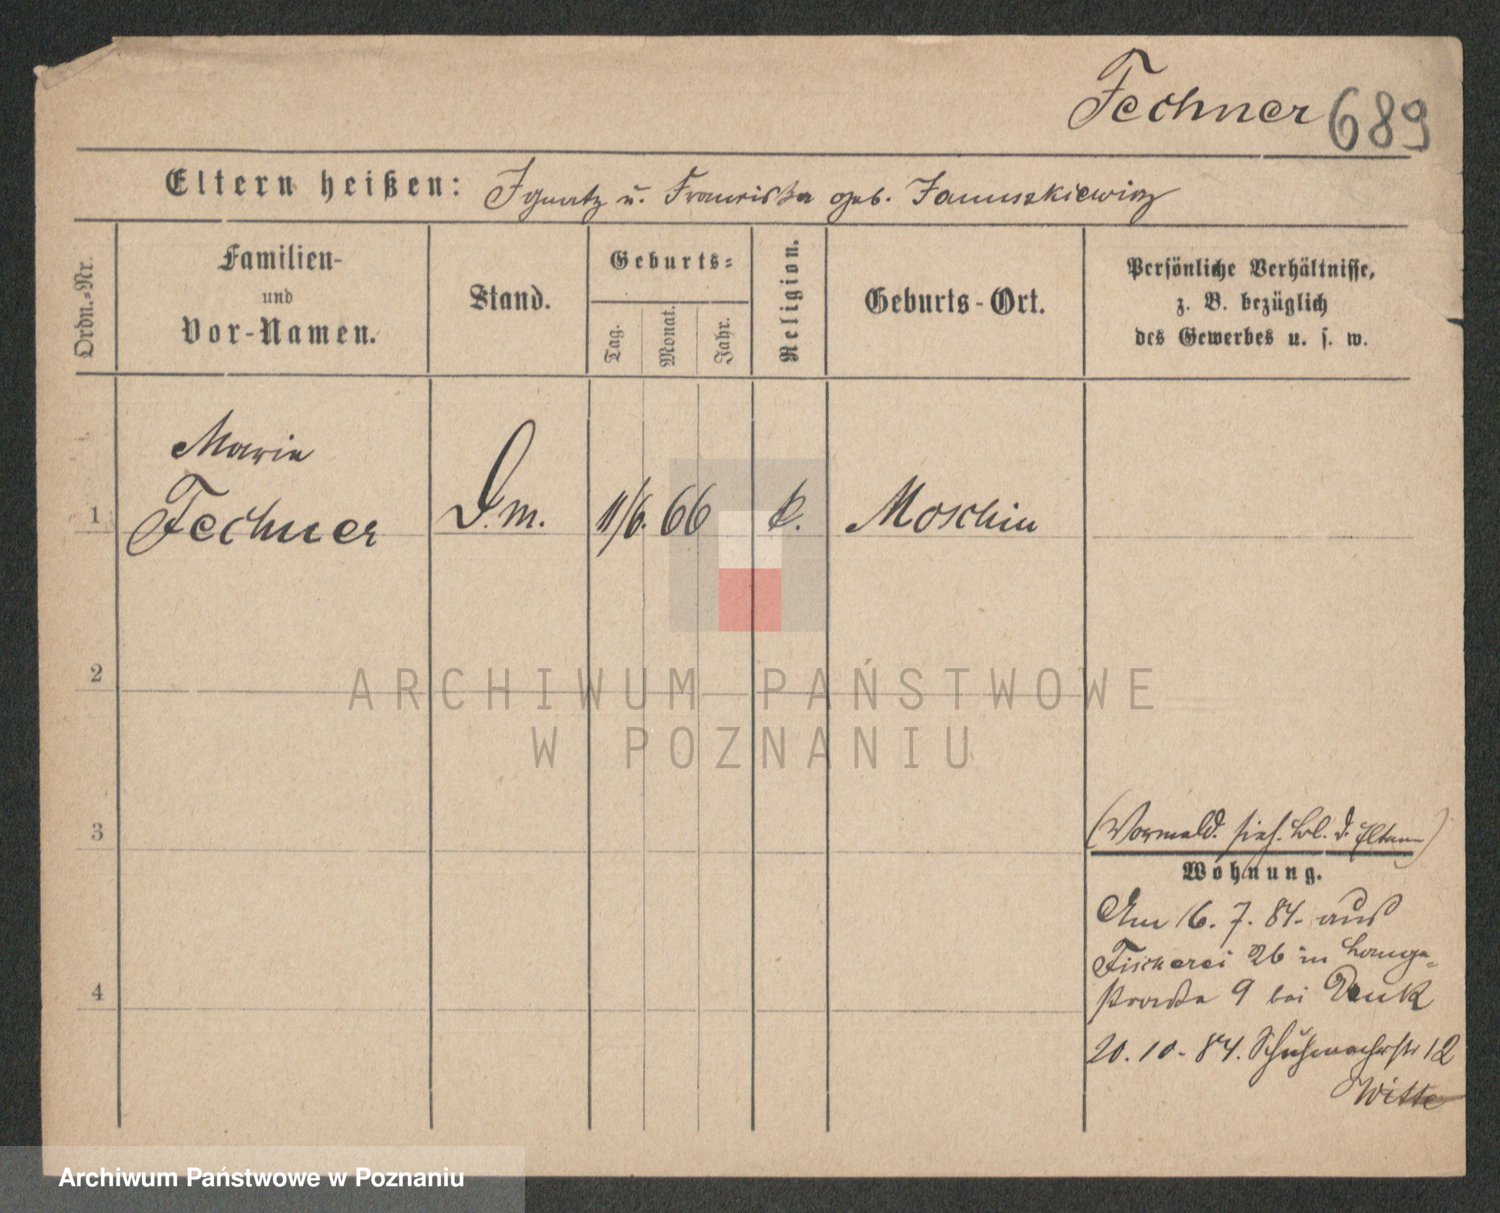 Fechner 689
Eltern heißen: Ignatz u. Franciska geb. Januszkiewicz
Ordn.-Nr.
Familien-
und
Vor-Namen.
Stand.
Geburts-
Tag.
Monat.
Jahr.
Religion.
Geburts-Ort.
Persönliche Verhältnisse,
z. B. bezüglich
des Gewerbes u. s. w.
Marie
1 Fechner D.m. 11/6. 66 k. Moschin
2
ARCHIWUM PAŃSTWOWE
W POZNANIU
3
(Vormeld. sieh. bl. d. Eltern)
Wohnung.
Am 16. 7. 84. aus
Fischerei 26 in Lange-
straße 9 bei Denk
4
20. 10. 84. Schuhmacherstr 12
Witte
Archiwum Państwowe w Poznaniu